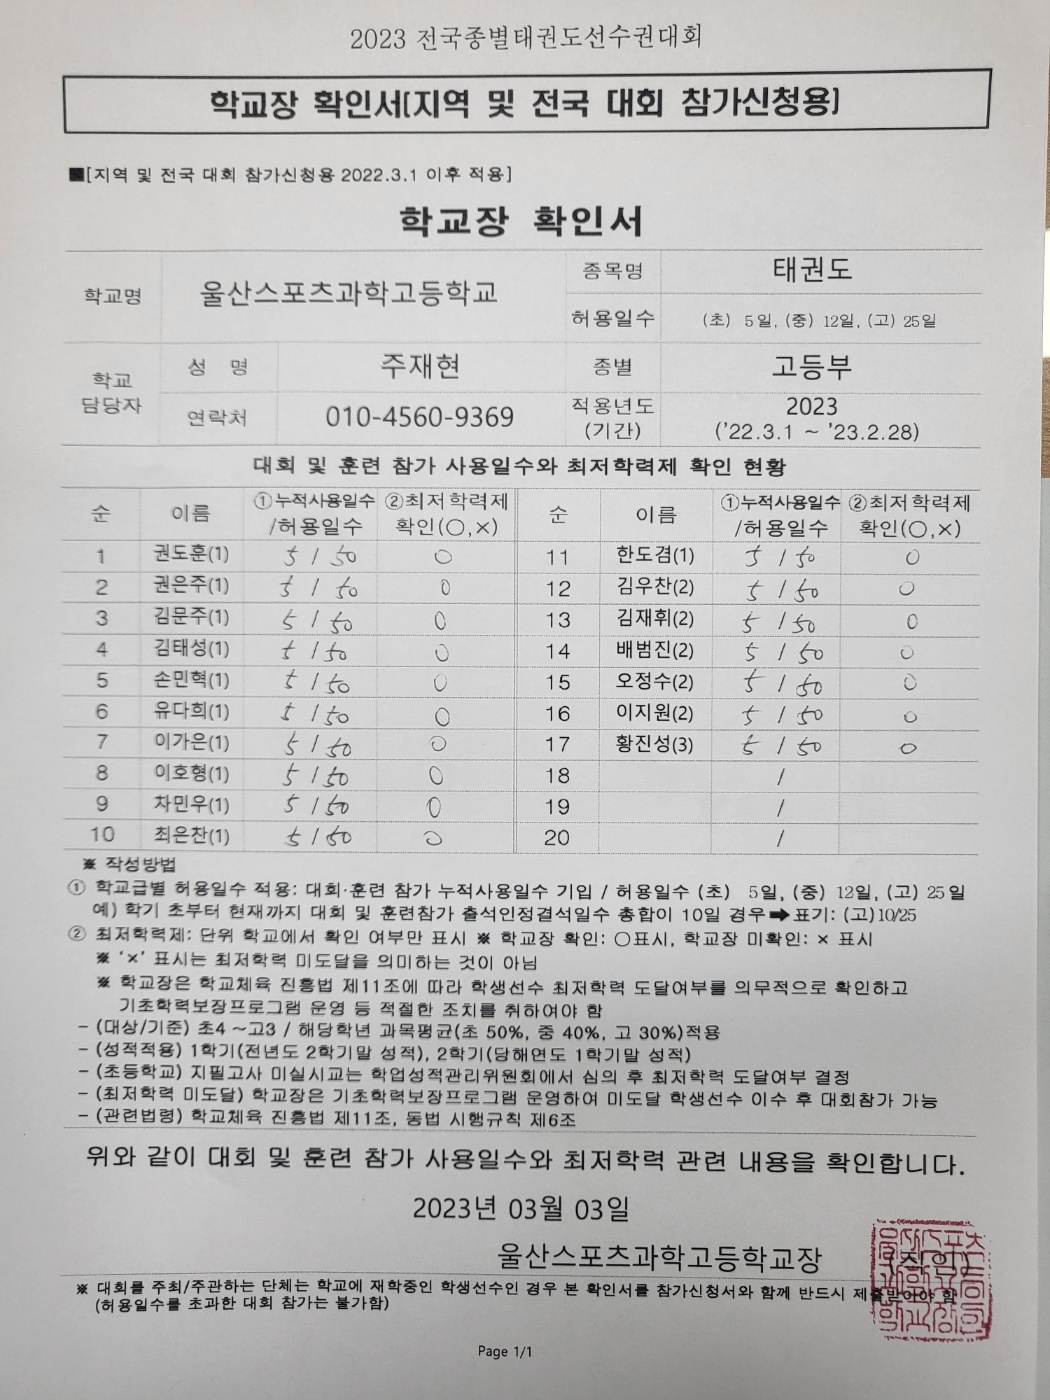 2023 전국종별태권도선수권대회
학교장 확인서[지역 및 전국 대회 참가신청용]
■[지역 및 전국 대회 참가신청용 2022.3.1 이후 적용]
학교장 확인서
학교명 울산스포츠과학고등학교 종목명 태권도
허용일수 (초) 5일, (중) 12일, (고) 25일
학교 담당자 성 명 주재현 종별 고등부
연락처 010-4560-9369 적용년도 (기간) 2023 ('22.3.1 ~ '23.2.28)
대회 및 훈련 참가 사용일수와 최저학력제 확인 현황
순 이름 ①누적사용일수 /허용일수 ②최저학력제 확인(○,×) 순 이름 ①누적사용일수 /허용일수 ②최저학력제 확인(○,×)
1 권도훈(1) 5 / 50 ○ 11 한도겸(1) 5 / 50 ○
2 권은주(1) 5 / 50 ○ 12 김우찬(2) 5 / 50 ○
3 김문주(1) 5 / 50 ○ 13 김재휘(2) 5 / 50 ○
4 김태성(1) 5 / 50 ○ 14 배범진(2) 5 / 50 ○
5 손민혁(1) 5 / 50 ○ 15 오정수(2) 5 / 50 ○
6 유다희(1) 5 / 50 ○ 16 이지원(2) 5 / 50 ○
7 이가은(1) 5 / 50 ○ 17 황진성(3) 5 / 50 ○
8 이호형(1) 5 / 50 ○ 18 /
9 차민우(1) 5 / 50 ○ 19 /
10 최은찬(1) 5 / 50 ○ 20 /
※ 작성방법
① 학교급별 허용일수 적용: 대회·훈련 참가 누적사용일수 기입 / 허용일수 (초) 5일, (중) 12일, (고) 25일
예) 학기 초부터 현재까지 대회 및 훈련참가 출석인정결석일수 총합이 10일 경우➡표기: (고)10/25
② 최저학력제: 단위 학교에서 확인 여부만 표시 ※ 학교장 확인: ○표시, 학교장 미확인: × 표시
※ '×' 표시는 최저학력 미도달을 의미하는 것이 아님
※ 학교장은 학교체육 진흥법 제11조에 따라 학생선수 최저학력 도달여부를 의무적으로 확인하고
기초학력보장프로그램 운영 등 적절한 조치를 취하여야 함
- (대상/기준) 초4 ~고3 / 해당학년 과목평균(초 50%, 중 40%, 고 30%)적용
- (성적적용) 1학기(전년도 2학기말 성적), 2학기(당해연도 1학기말 성적)
- (초등학교) 지필고사 미실시교는 학업성적관리위원회에서 심의 후 최저학력 도달여부 결정
- (최저학력 미도달) 학교장은 기초학력보장프로그램 운영하여 미도달 학생선수 이수 후 대회참가 가능
- (관련법령) 학교체육 진흥법 제11조, 동법 시행규칙 제6조
위와 같이 대회 및 훈련 참가 사용일수와 최저학력 관련 내용을 확인합니다.
2023년 03월 03일
울산스포츠과학고등학교장 (직인)
※ 대회를 주최/주관하는 단체는 학교에 재학중인 학생선수인 경우 본 확인서를 참가신청서와 함께 반드시 제출받아야 함
(허용일수를 초과한 대회 참가는 불가함)
Page 1/1